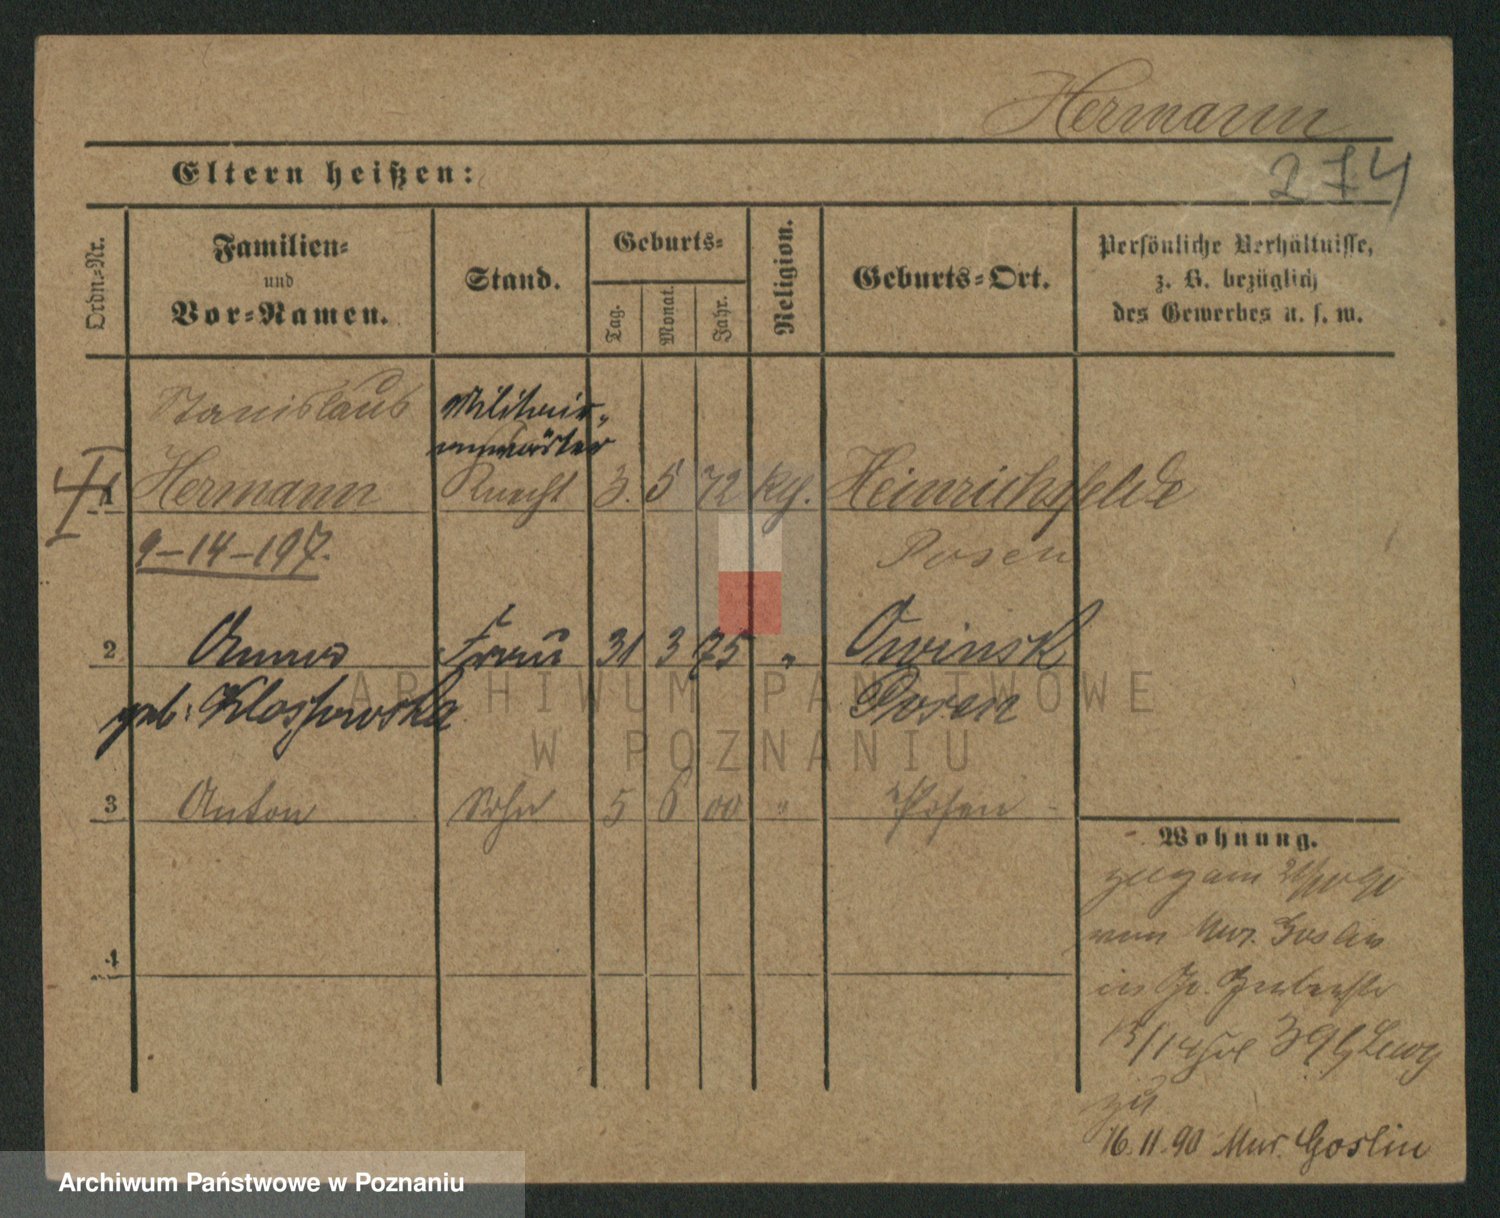 Hermann
274
Eltern heißen:
Ordn.-Nr.
Familien-
und
Vor-Namen.
Stand.
Geburts-
Tag.
Monat.
Jahr.
Religion.
Geburts-Ort.
Persönliche Verhältnisse,
z. B. bezüglich
des Gewerbes u. s. w.
Stanislaus
Militair-
anwärter
1 Hermann Knecht 3. 5 72 kth. Heinrichsfelde
9-14-197. Posen
2 Anna Frau 31 3 75 " Owinsk
geb: Klossowska Posen
ARCHIWUM PAŃSTWOWE
W POZNANIU
3 Anton Sohn 5 6 00 " Posen
4
Wohnung.
am
von Mur. Goslin
in
zu
16.11.90 Mur. Goslin
Archiwum Państwowe w Poznaniu